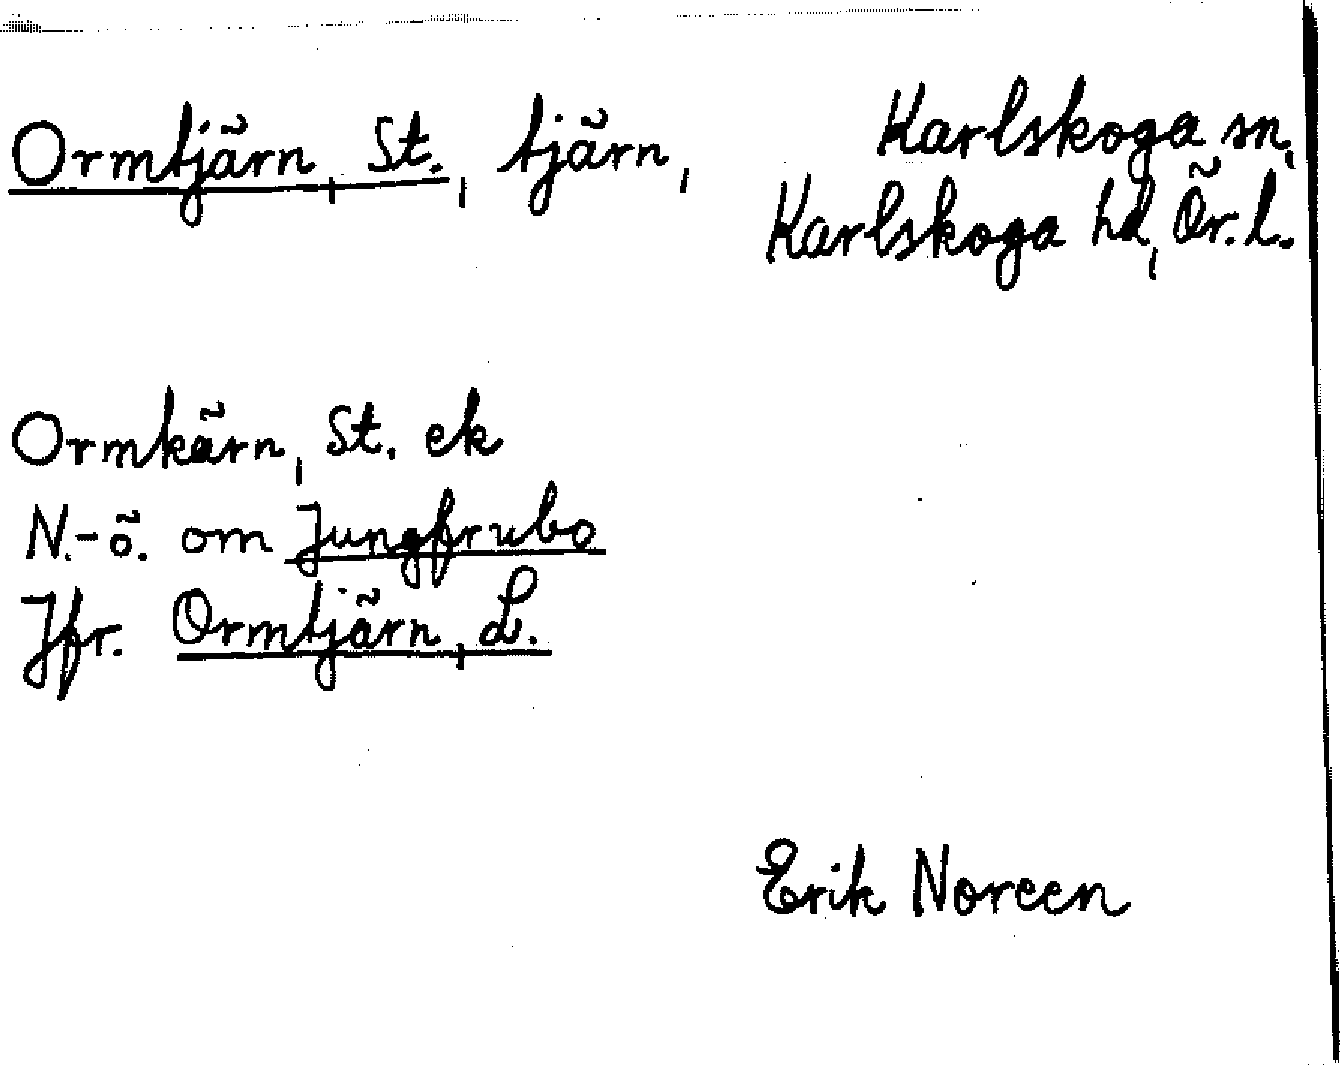 Ormtjärn, St., tjärn,
Karlskoga sn,
Karlskoga hd, Ör. l.
Ormkärn, St. ek
N.-ö. om Jungfrubo
Jfr. Ormtjärn, L.
Erik Noreen